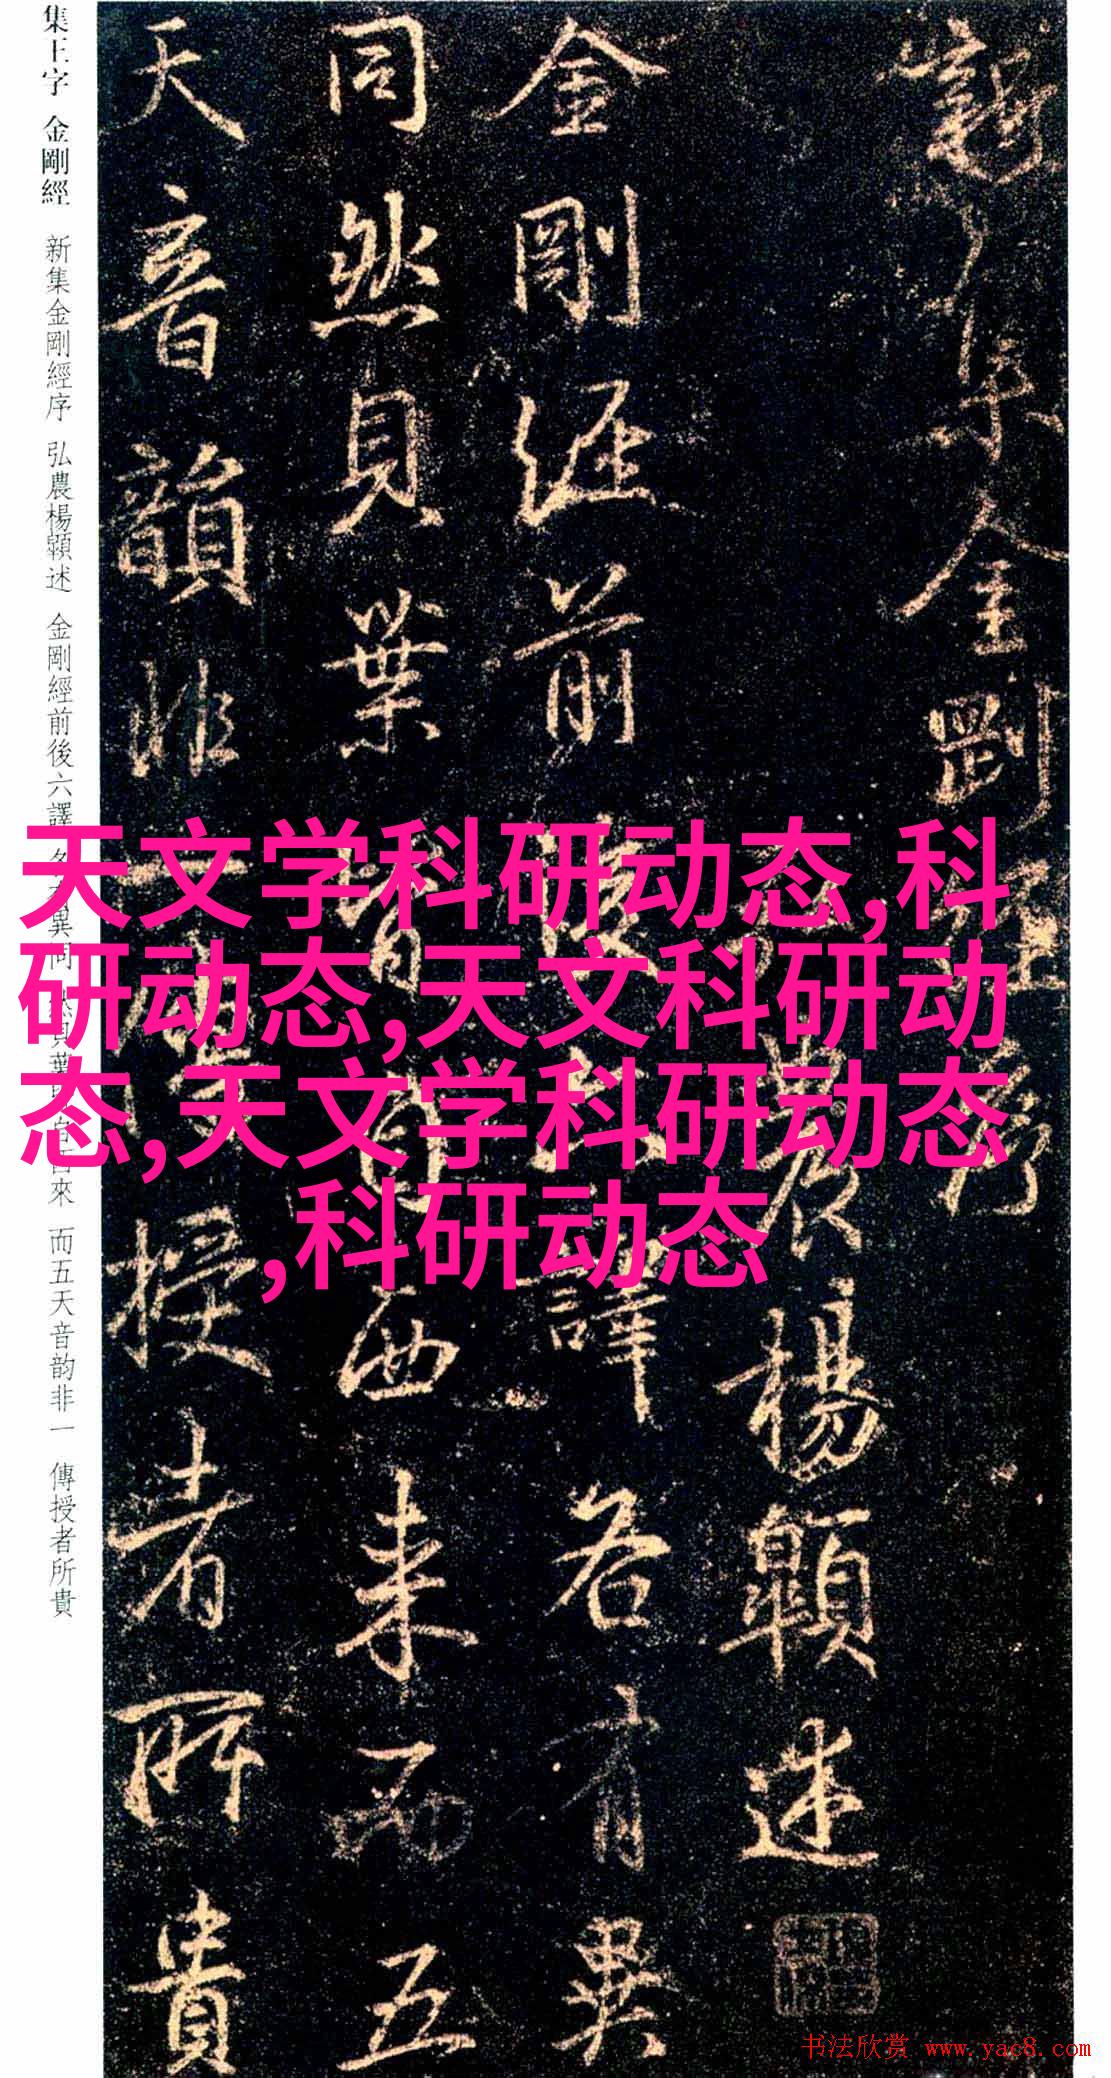 集王字 金剛經 新集金剛經序 弘農楊顗述 金剛經前後六譯 各有異同 然貝葉 自西來 而五天音韵非一 傳授者所貴
新集金剛經序
農楊顗述
金剛經前後六譯各有異
同然貝葉皆自西来而五
天音韻非一傳授者所貴
天文学科研动态,科
研动态,天文科研动
态,天文学科研动态
,科研动态
书法欣赏 www.yac8.com